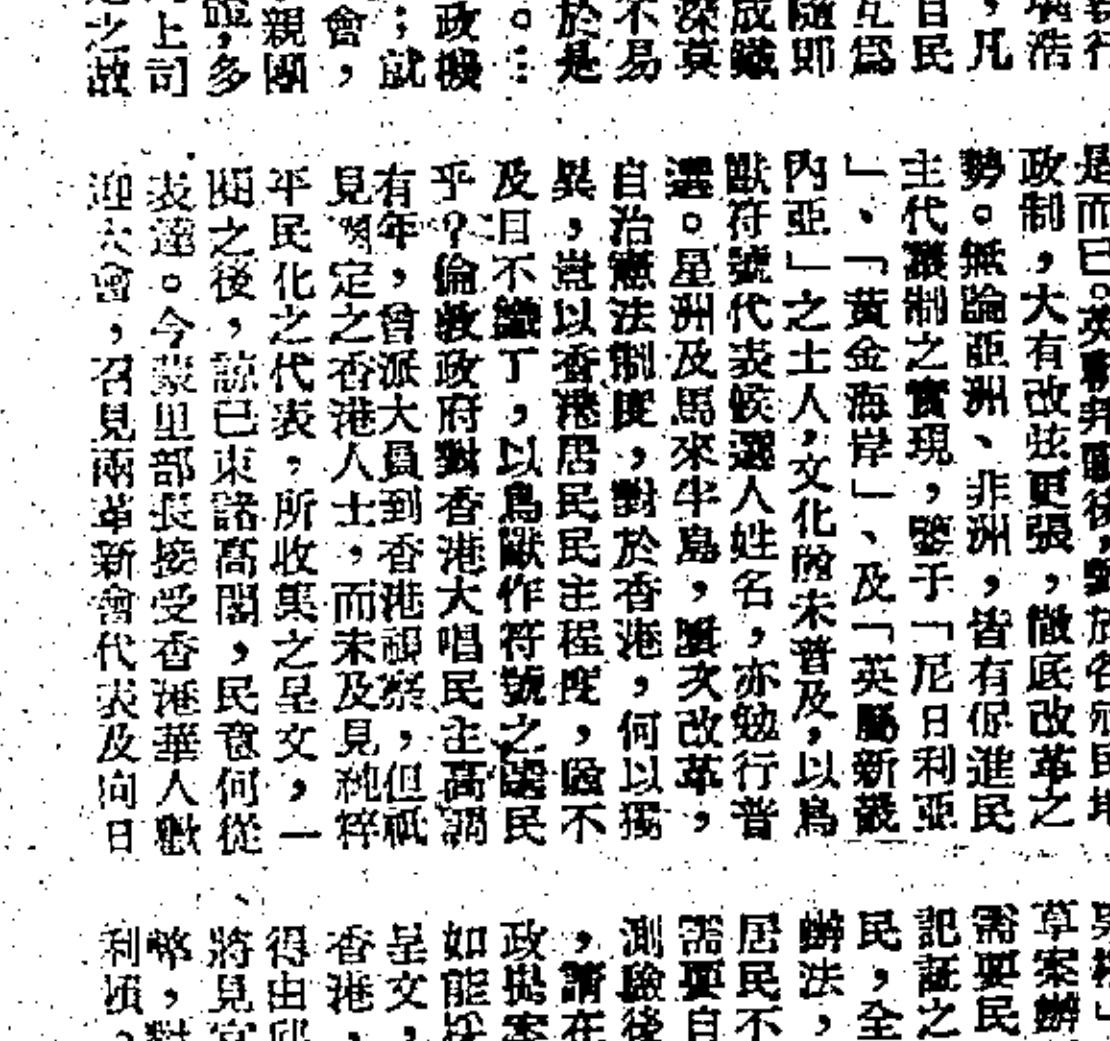 行
浩
，凡
民
互爲
隨即
成
深莫
不易
於是
。：
政機
；試
會，
親團
，多
上司
之故
是而已。英聯邦戰後，對於各屬民地
政制，大有改弦更張，徹底改革之
勢。無論亞洲、非洲，皆有促進民
主代議制之實現，鑒于「尼日利亞
」、「黃金海岸」、及「英屬新畿
內亞」之土人，文化尙未普及，以鳥
獸符號代表候選人姓名，亦勉行普
選。星洲及馬來半島，屢次改革，
自治憲法制度，對於香港，何以獨
異，豈以香港居民民主程度，不
及目不識丁，以鳥獸作符號之選民
乎？倫敦政府對香港大唱民主高調
有年，曾派大員到香港視察，但祇
見預定之香港人士，而未及見純粹
平民化之代表，所收集之呈文，一
閱之後，諒已束諸高閣，民意何從
表達。今蒙里部長接受香港華人歡
迎大會，召見兩革新會代表及向日
草案辦
需要民
記証之
民，全
辦法，
居民不
需要自
測驗後
，請在
政案
如能採
呈文，
香港，
得由邱
將見
幣，對
利。